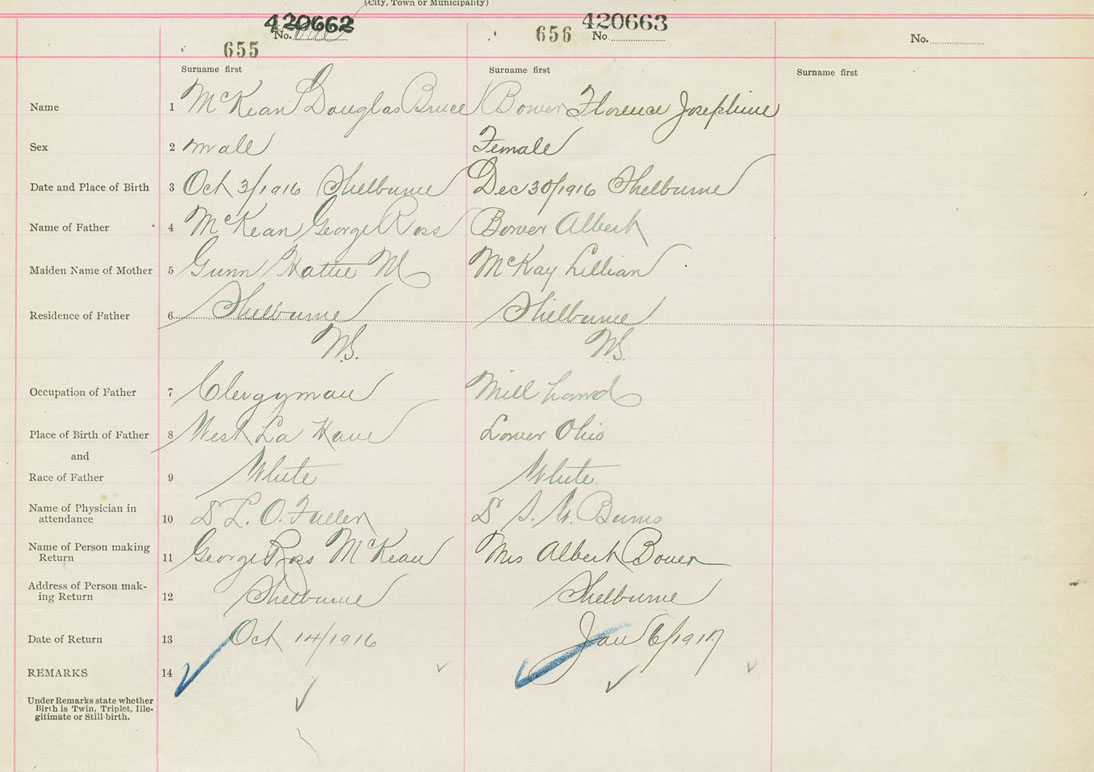 (City, Town or Municipality)
420662 420663
No. No No.
655 656
Surname first Surname first Surname first
Name 1 McKean Douglas Bruce Bower Florence Josephine
Sex 2 male Female
Date and Place of Birth 3 Oct 3/1916 Shelburne Dec 30/1916 Shelburne
Name of Father 4 McKean George Ross Bower Albert
Maiden Name of Mother 5 Gunn Hattie M McKay Lillian
Residence of Father 6 Shelburne Shelburne
N.S. N.S.
Occupation of Father 7 Clergyman Mill hand
Place of Birth of Father 8 West La Have Lower Ohio
and
Race of Father 9 White White
Name of Physician in
attendance 10 D L. O. Fuller D S. W. Burns
Name of Person making
Return 11 George Ross McKean Mrs Albert Bower
Address of Person mak-
ing Return 12 Shelburne Shelburne
Date of Return 13 Oct 14/1916 Jan 6/1917
REMARKS 14
Under Remarks state whether
Birth is Twin, Triplet, Ille-
gitimate or Still-birth.